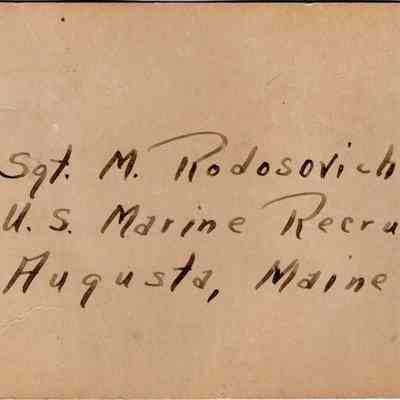 Sgt. M. Rodosovich
U.S. Marine Recru
Augusta, Maine